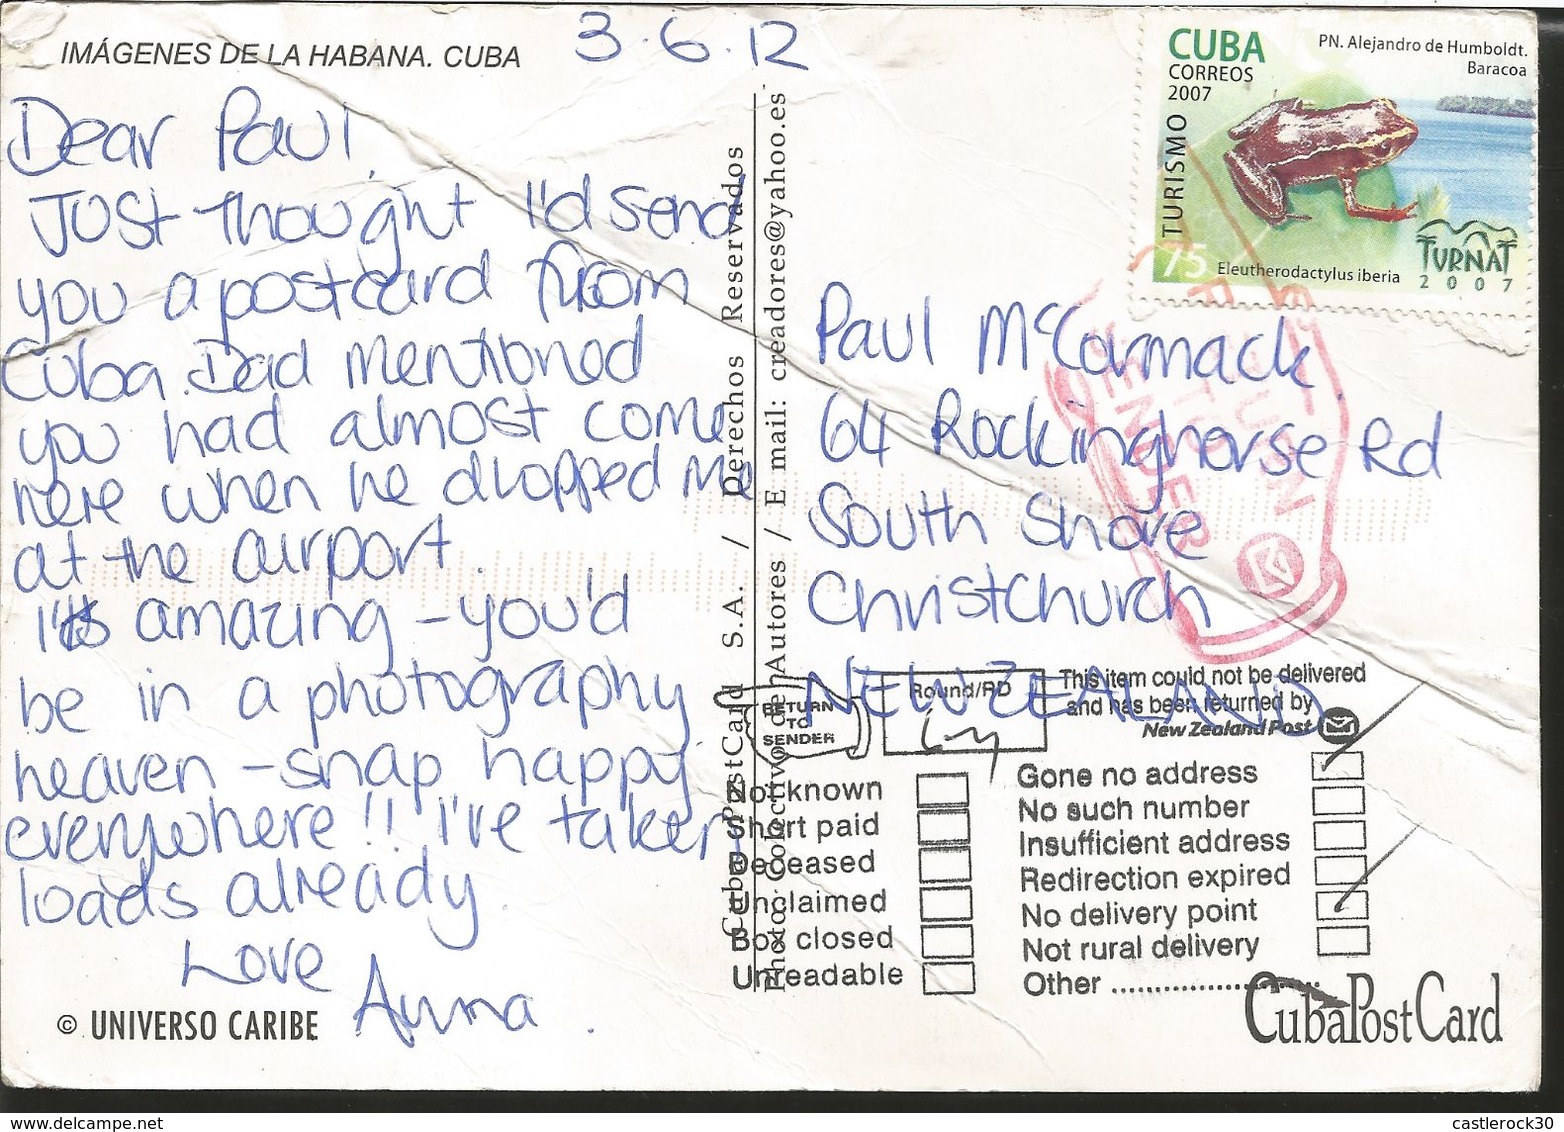 IMÁGENES DE LA HABANA. CUBA
3.6.12
Dear Paul,
Just thought I'd send
you a postcard from
Cuba. Dad mentioned
you had almost come
here when he dropped me
at the airport.
It's amazing - you'd
be in a photography
heaven - snap happy
everywhere!! I've taken
loads already.
Love
Anna.
© UNIVERSO CARIBE
Cuba PostCard S.A. / Derechos Reservados
Photo: Colectivo de Autores / E mail: creadores@yahoo.es
CUBA
CORREOS
2007
PN. Alejandro de Humboldt.
Baracoa
TURISMO
75
Eleutherodactylus iberia
TURNAT
2007
Paul McCormack
64 Rockinghorse Rd
South Shore
Christchurch
NEW ZEALAND
RETURN
TO
SENDER
RETURN
TO
SENDER
Round/RD
This item could not be delivered
and has been returned by
New Zealand Post
Not known
Short paid
Deceased
Unclaimed
Box closed
Unreadable
Gone no address
No such number
Insufficient address
Redirection expired
No delivery point
Not rural delivery
Other ........................
CubaPostCard
www.delcampe.net
castlerock30